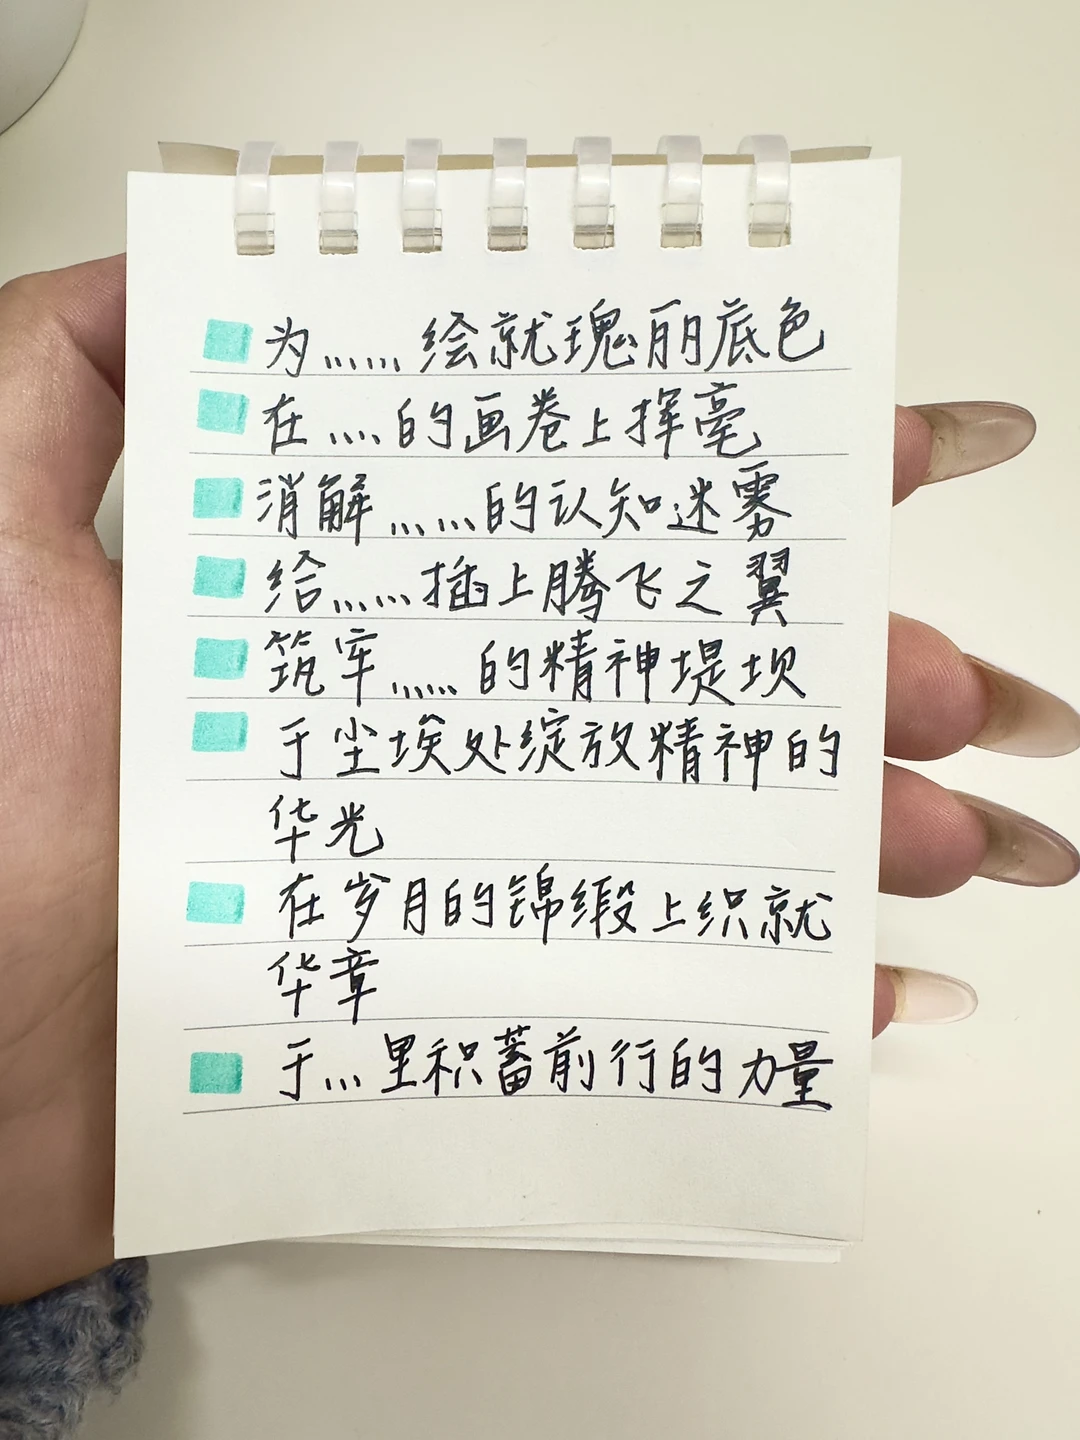 为......绘就瑰丽底色
在....的画卷上挥毫
消解......的认知迷雾
给......插上腾飞之翼
筑牢......的精神堤坝
于尘埃处绽放精神的
华光
在岁月的锦缎上织就
华章
于...里积蓄前行的力量